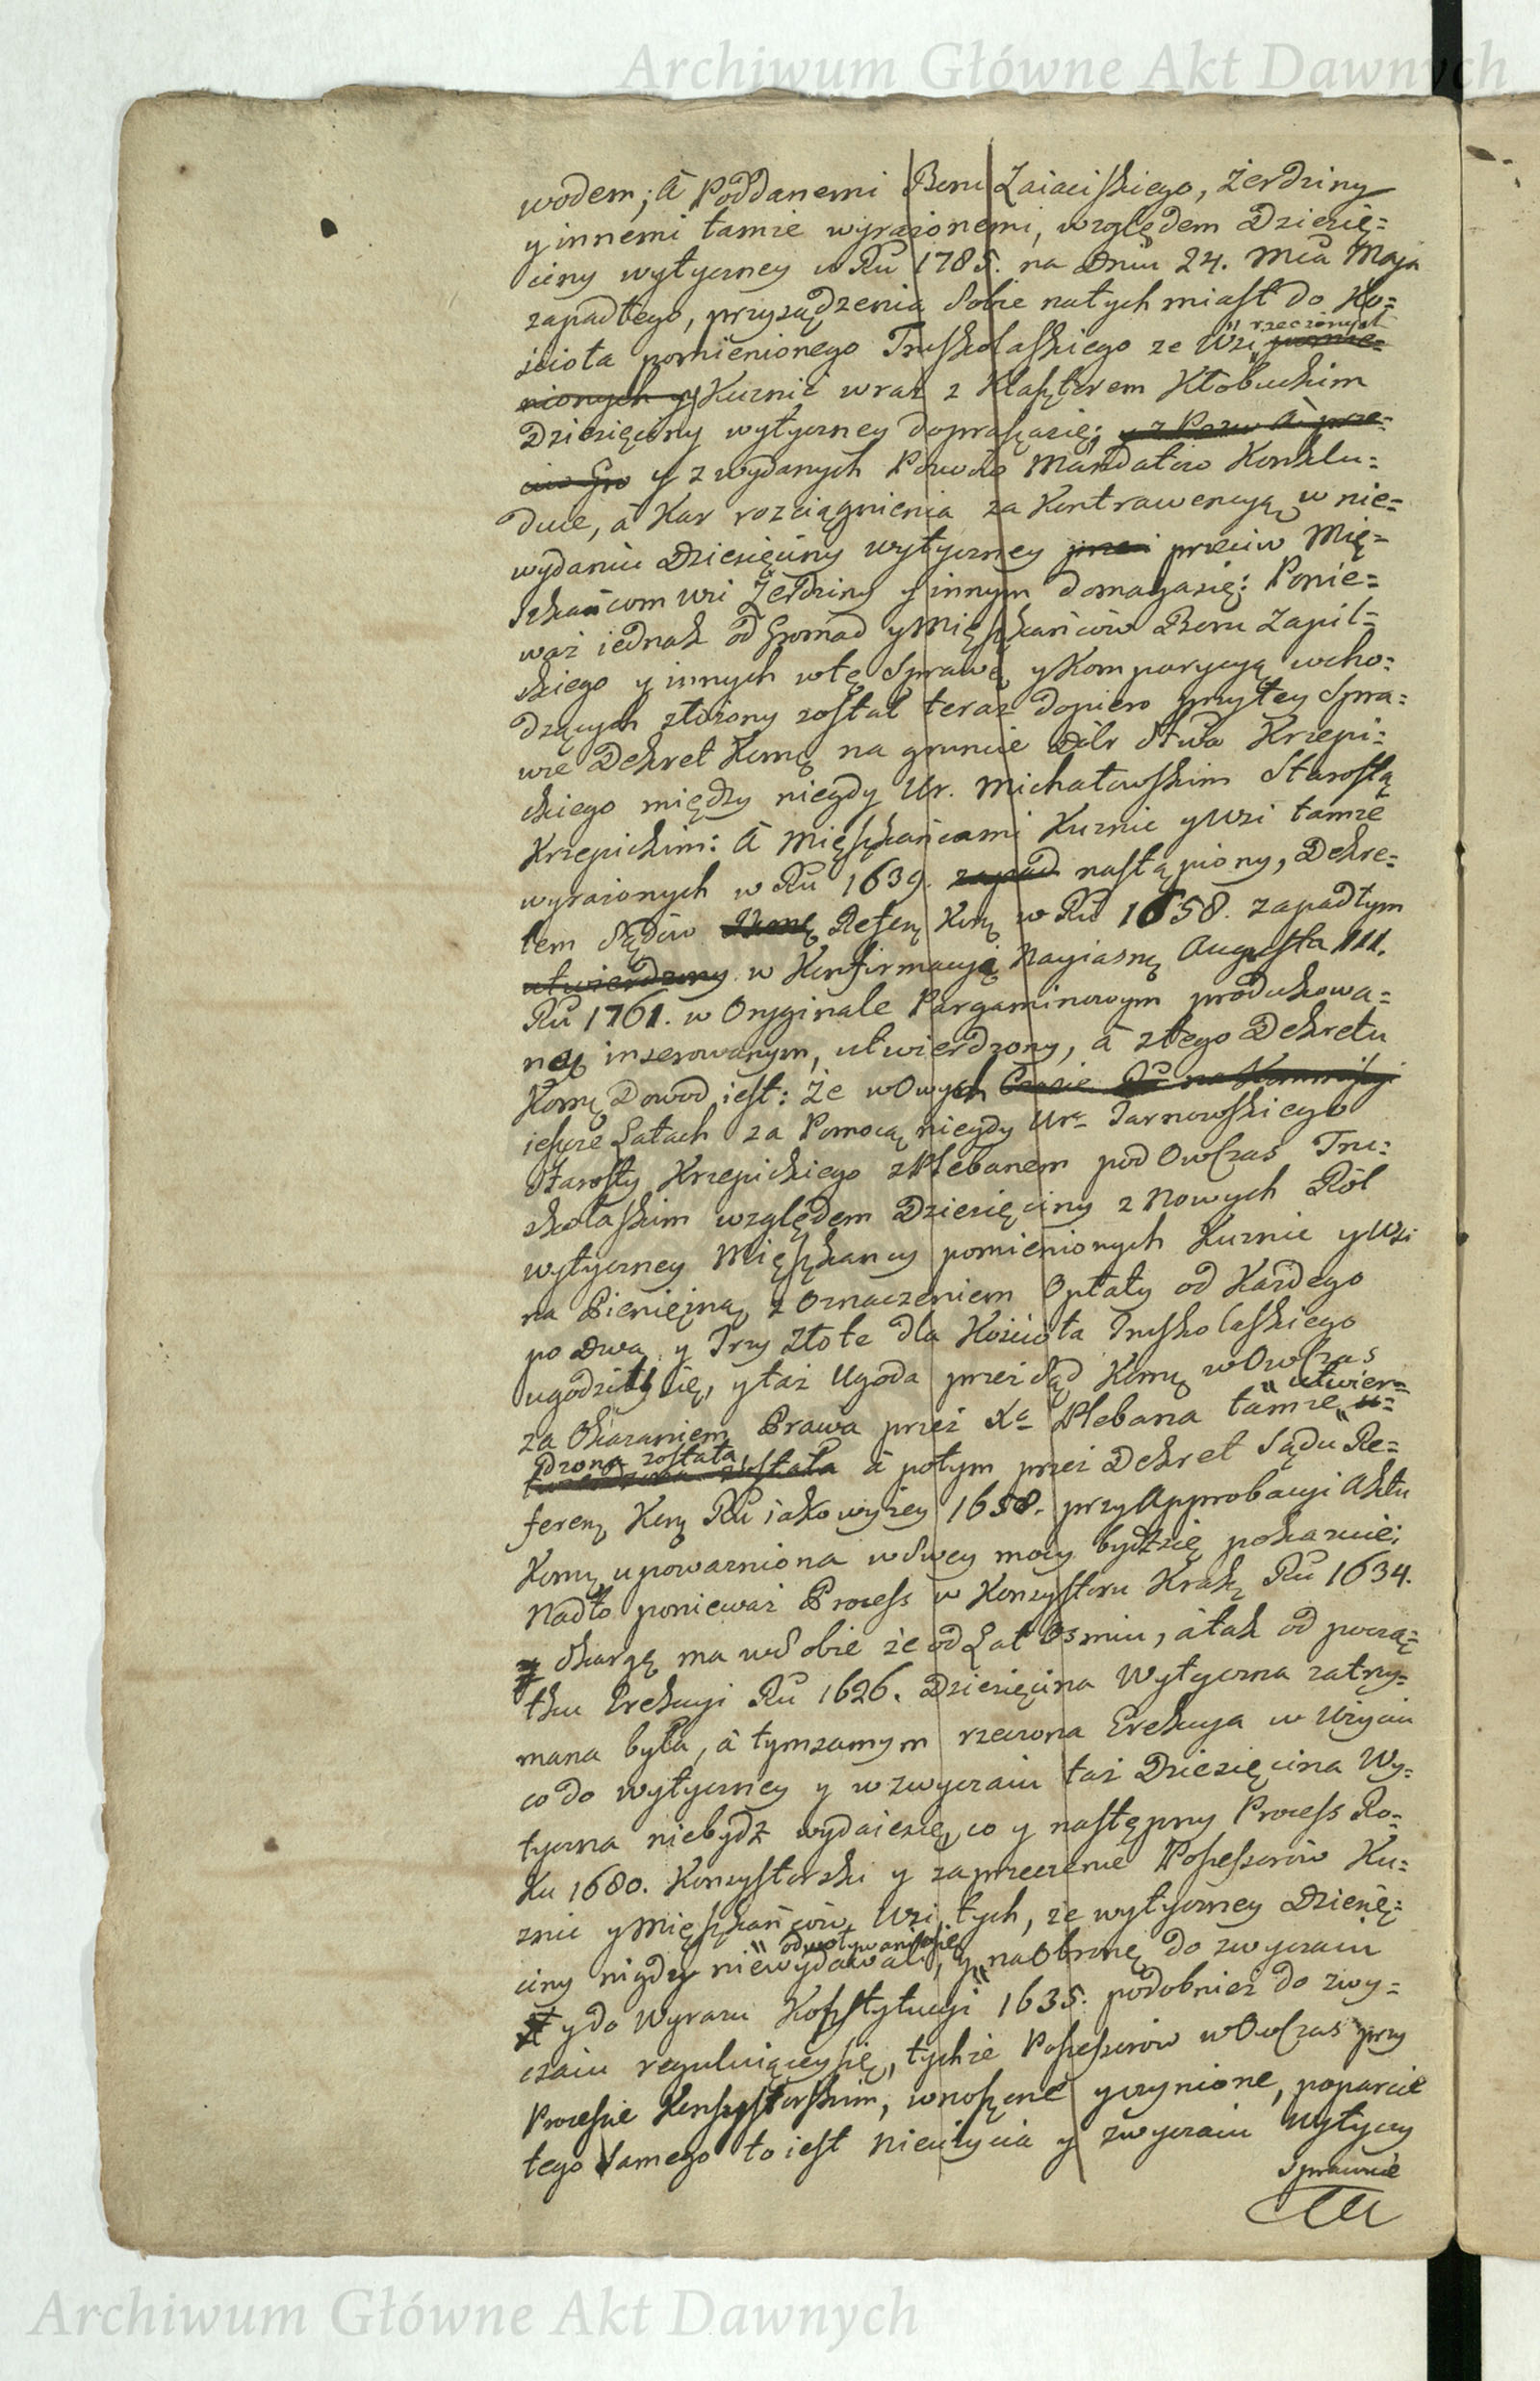 Archiwum Główne Akt Dawnych
wodem; â Poddanemi Boru Zaiaciskiego, Żerdziny
y innemi tamże wyrażonemi, względem Dziesię=
ciny wytyczney w Rũ 1785. na Dniu 24. Mcã Maja
zapadłego, przysądzenia sobie natych miast do Ko=
ścioła pomienionego Truskolaskiego ze Wsi " rzeczonych pomie=
nionych y Kuznic wraz z Klasztorem Kłobuckim
Dziesięciny wytyczney dopraszasię; y z Pozw â prze=
ciw Gro y z wydanych Powodo Mandatow Konklu=
duie, â Kar rozciągnienia za Kontrawencyą w nie=
wydaniu Dziesięciny wytyczney przci przeciw Mię=
szkańcom Wsi Żerdziny y innym domagasię: Ponie=
waż iednak od Gromad y Mięszkańców Boru Zapil=
skiego y innych w tę Sprawę y Komparycyą wcho=
dzących złożony został teraz dopiero przy tey Spra=
wie Dekret Komę na gruncie Dóbr Stwa Krzepi=
ckiego między niegdy Ur. Michałowskim Starostą
Krzepickim: â Mięszkańcami Kuznic y Wsi tamże
wyrażonych w Rũ 1639. zapad nastąpiony, Dekre=
tem Sądów Refeny Kory w Rũ 1658. zapadłym
utwierdzony w Konfirmacyą Nayiasnę Augusta III.
Rũ 1761. w Oryginale Pargaminowym produkowa=
ney inserowanym, utwierdzony, â z tego Dekretu
Komę Dowod iest: że w Owych Czasie Rũ na Kommissyi
ieszcze Latach za Pomocą niegdy Urº Tarnowskiego
Starosty Krzepickiego z Plebanem pod Owczas Tru=
skolaskim względem Dziesięciny z Nowych Ról
wytyczney Mięszkancy pomienionych Kuznic y Wsi
na Pieniężną z Oznaczeniem Opłaty od Każdego
po Dwa y Trzy złote dla Kościoła Truskolaskiego
ugodzili się, y taż Ugoda przez Sąd Komę w Owczas
za Okazaniem Prawa przez Xª Plebana tamże " utwier= u=
dzona została twierdzona została â potym przez Dekret Sądu Re=
fereny Kory Rũ iako wyżey 1658. przy Approbacyi Aktu
Komę upoważniona w Swey mocy bydźsię pokazuie;
Nadto ponieważ Process w Konsystoru Krakę Rũ 1634.
skargę ma w Sobie że od Lat Osmiu, â tak od począ=
tku Erekcyi Rũ 1626. Dziesięcina Wytyczna zatrzy=
mana była, â tymsamym rzeczona Erekcya w Użyciu
co do wytyczney y w zwyczaiu taż Dziesięcina Wy=
tyczna niebydź wydaiesię, co y następny Process Ro=
ku 1680. Konsystorski y zaprzeczenie Possessorów Ku=
znic y Mięszkańców Wsi tych, że wytyczney Dziesię=
ciny nigdy niewydawali, y " odwoływaniesię " na Obronę do zwyczaiu
y do Wyrazu Konstytucyi 1635. podobnież do zwy=
czaiu reguluiąceysię, tychże Possessorów w Owczas przy
Processie Konsystorskim, wnoszęne y czynione, poparcie
tego samego to iest Nieużycia y zwyczaiu Wytyczy
Sprawnie
Archiwum Główne Akt Dawnych